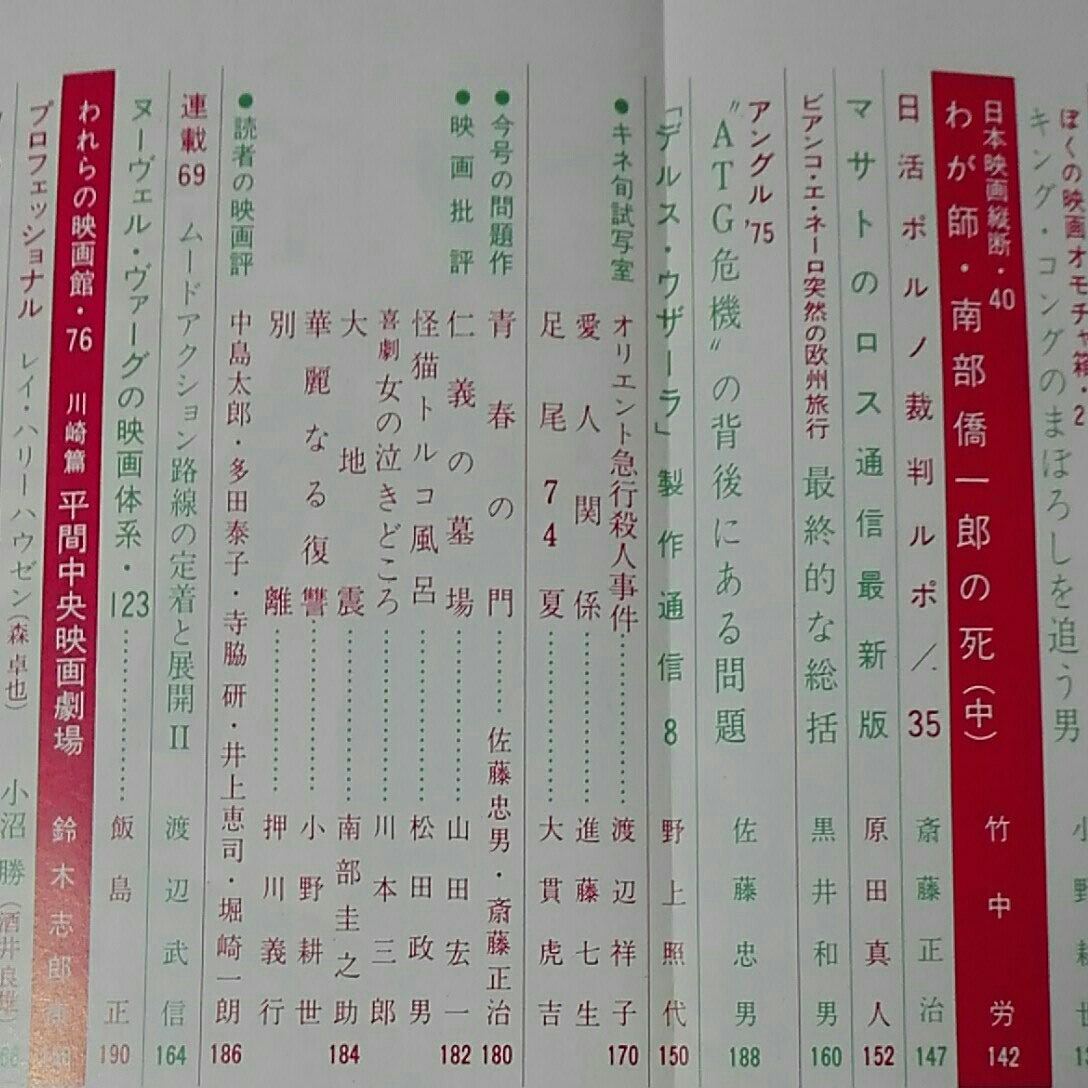 ぼくの映画オモチャ箱 2
キング・コングのまぼろしを追う男 小野耕世
日本映画縦断・40
わが師・南部僑一郎の死(中) 竹中労 142
日活ポルノ裁判ルポ/.35 斎藤正治 147
マサトのロス通信最新版 原田真人 152
ビアンコ・エ・ネーロ突然の欧州旅行 最終的な総括 黒井和男 160
アングル'75
“ATG危機”の背後にある問題 佐藤忠男 188
「デルス・ウザーラ」製作通信 8 野上照代 150
●キネ旬試写室 オリエント急行殺人事件 渡辺祥子 170
愛人関係 進藤七生
足尾74夏 大貫虎吉
●今号の問題作 青春の門 佐藤忠男・斎藤正治 180
●映画批評 仁義の墓場 山田宏一 182
怪猫トルコ風呂 松田政男
喜劇 女の泣きどころ 川本三郎
大地震 南部圭之助 184
華麗なる復讐 小野耕世
別離 押川義行
●読者の映画評 中島太郎・多田泰子・寺脇研・井上恵司・堀崎一朗 186
連載69 ムードアクション路線の定着と展開II 渡辺武信 164
ヌーヴェル・ヴァーグの映画体系・123 飯島正 190
われらの映画館・76 川崎篇 平間中央映画劇場 鈴木志郎康
プロフェッショナル レイ・ハリーハウゼン(森卓也) 小沼勝(酒井良雄)